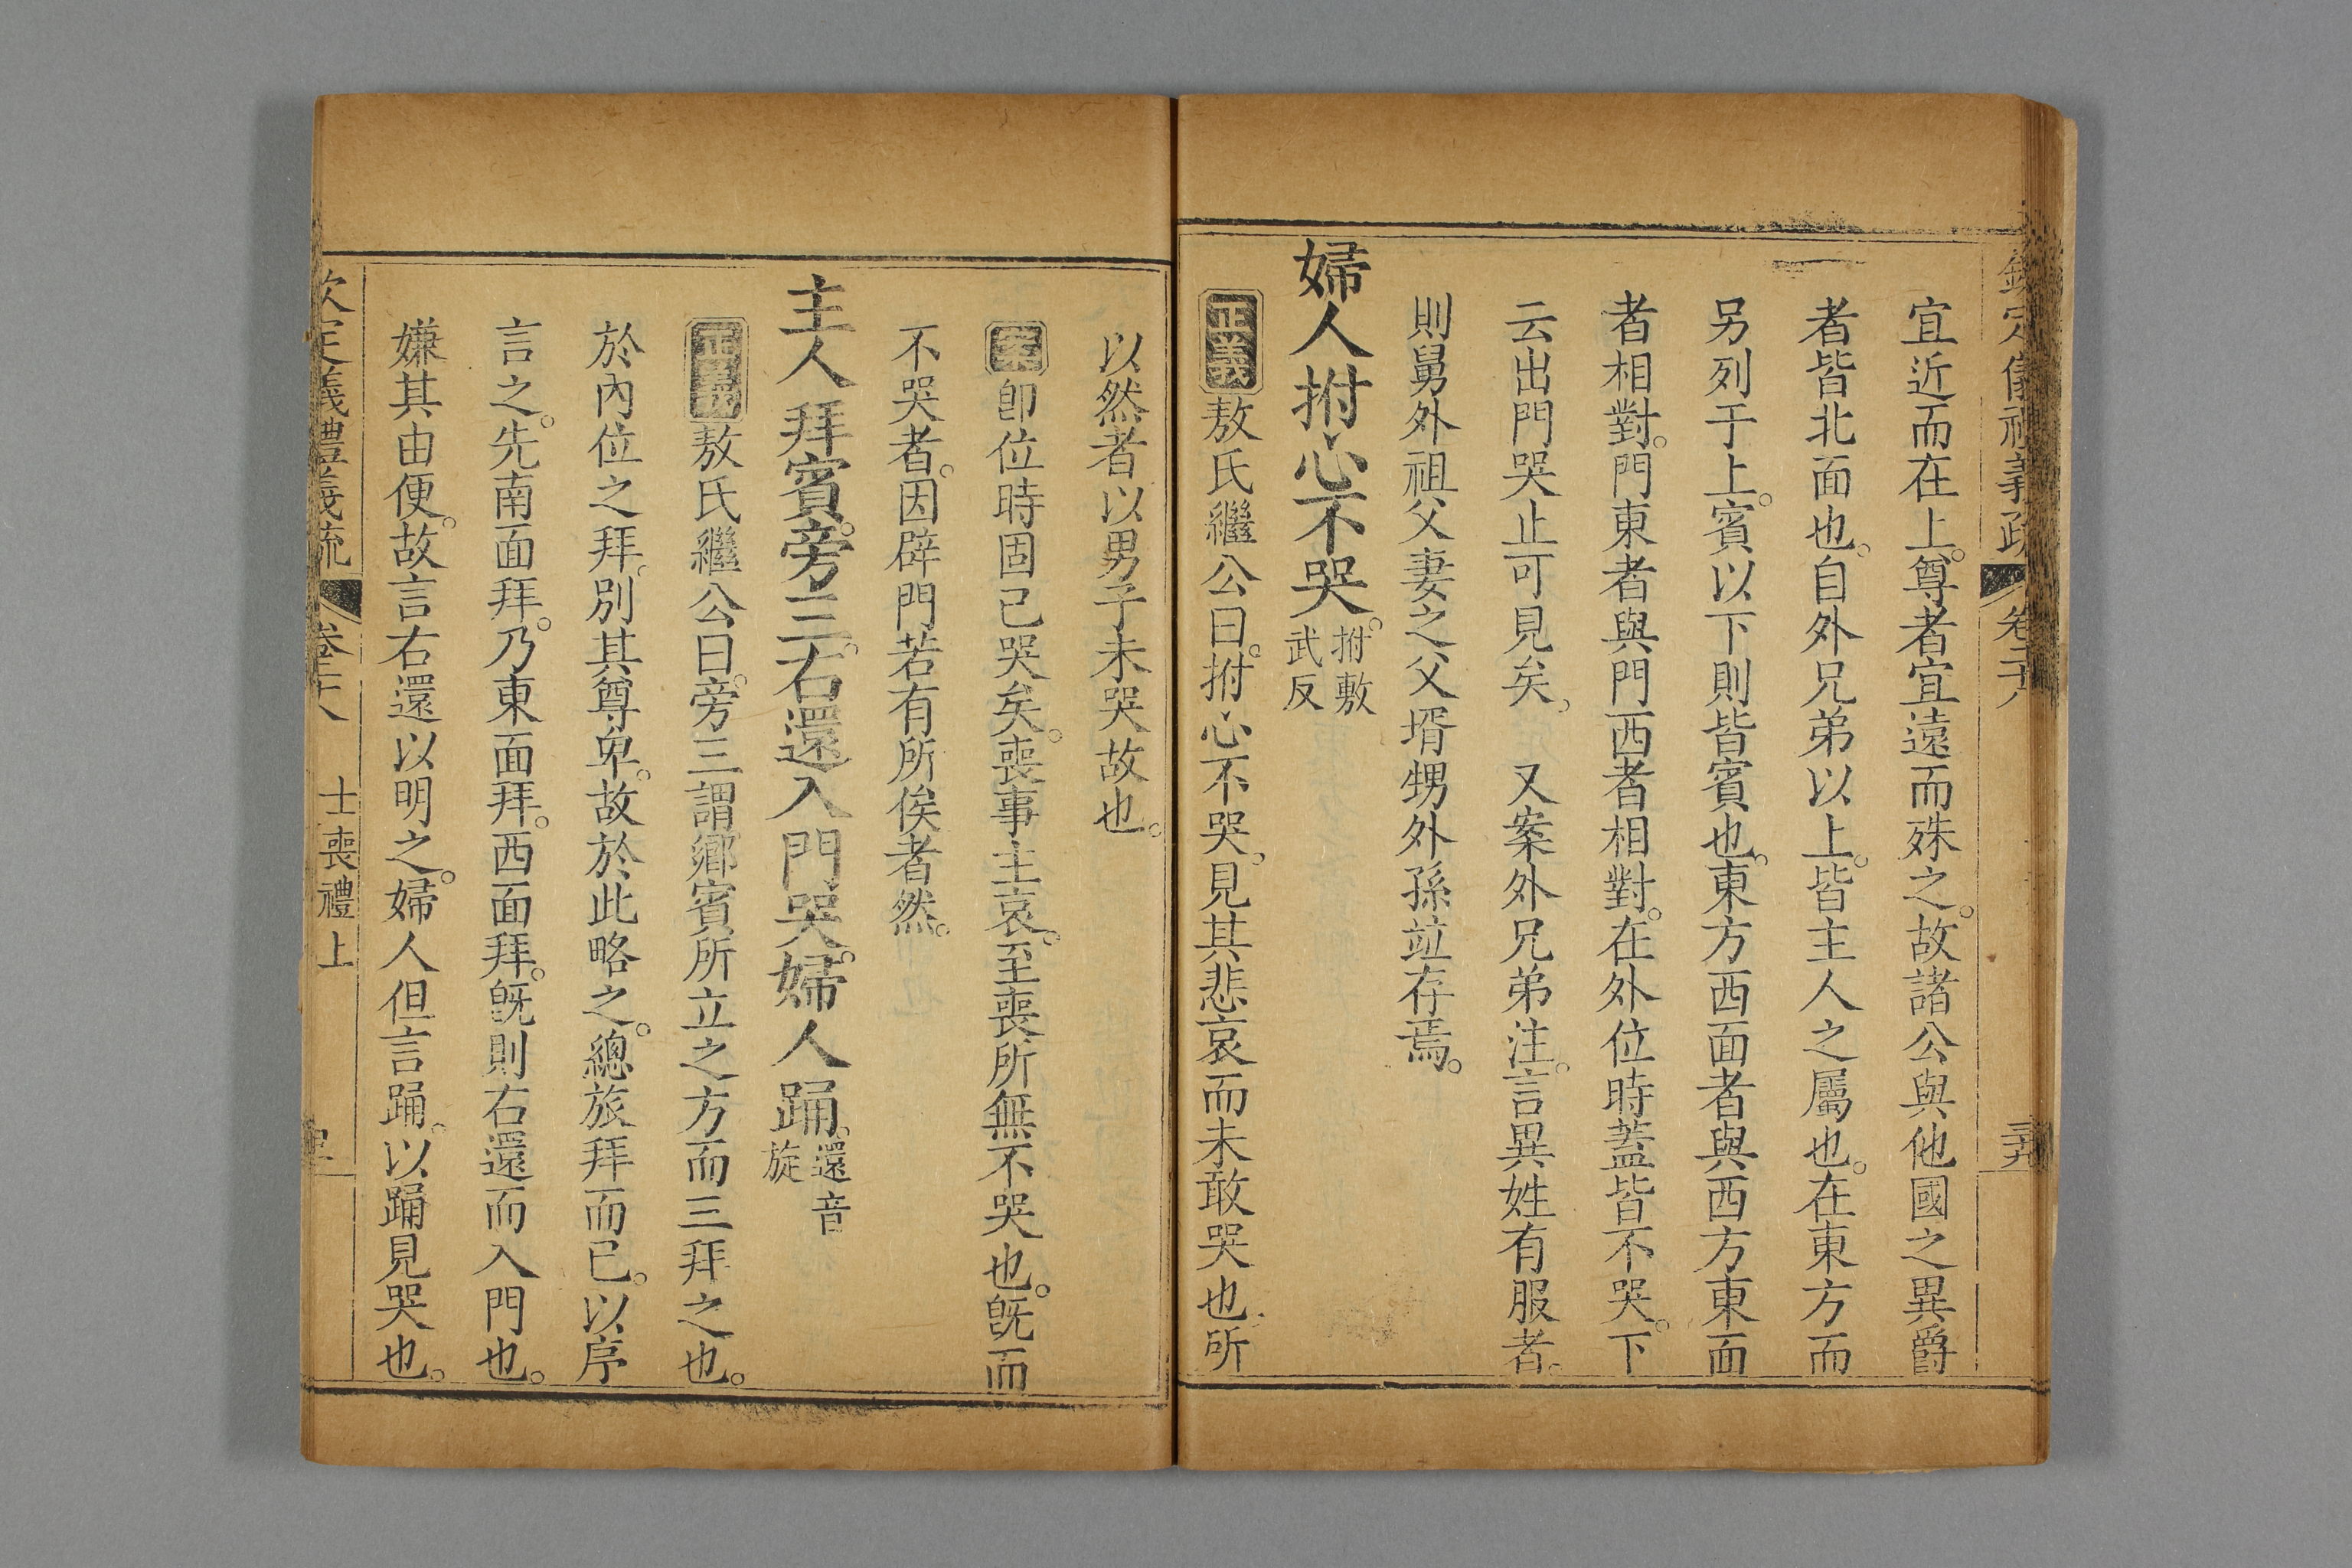 宜近而在上。尊者宜遠而殊之。故諸公與他國之異爵
者皆北面也。自外兄弟以上。皆主人之屬也。在東方而
另列于上。賓以下則皆賓也。東方西面者與西方東面
者相對。門東者與門西者相對。在外位時蓋皆不哭。下
云出門哭止可見矣。 又案外兄弟注。言異姓有服者。
則舅外祖父妻之父壻甥外孫竝存焉。
婦人拊心不哭。拊敷武反
正義敖氏繼公曰。拊心不哭。見其悲哀而未敢哭也所
以然者以男子未哭故也。
案卽位時固已哭矣。喪事主哀。至喪所無不哭也。旣而
不哭者。因辟門若有所俟者然。
主人拜賓。旁三。右還入門哭。婦人踊。還音旋
正義敖氏繼公曰。旁三謂鄉賓所立之方而三拜之也。
於內位之拜。別其尊卑。故於此略之。總旅拜而已。以序
言之。先南面拜。乃東面拜。西面拜。旣則右還而入門也。
嫌其由便。故言右還以明之。婦人但言踊。以踊見哭也。
欽定義禮義疏 卷二十八 士喪禮上